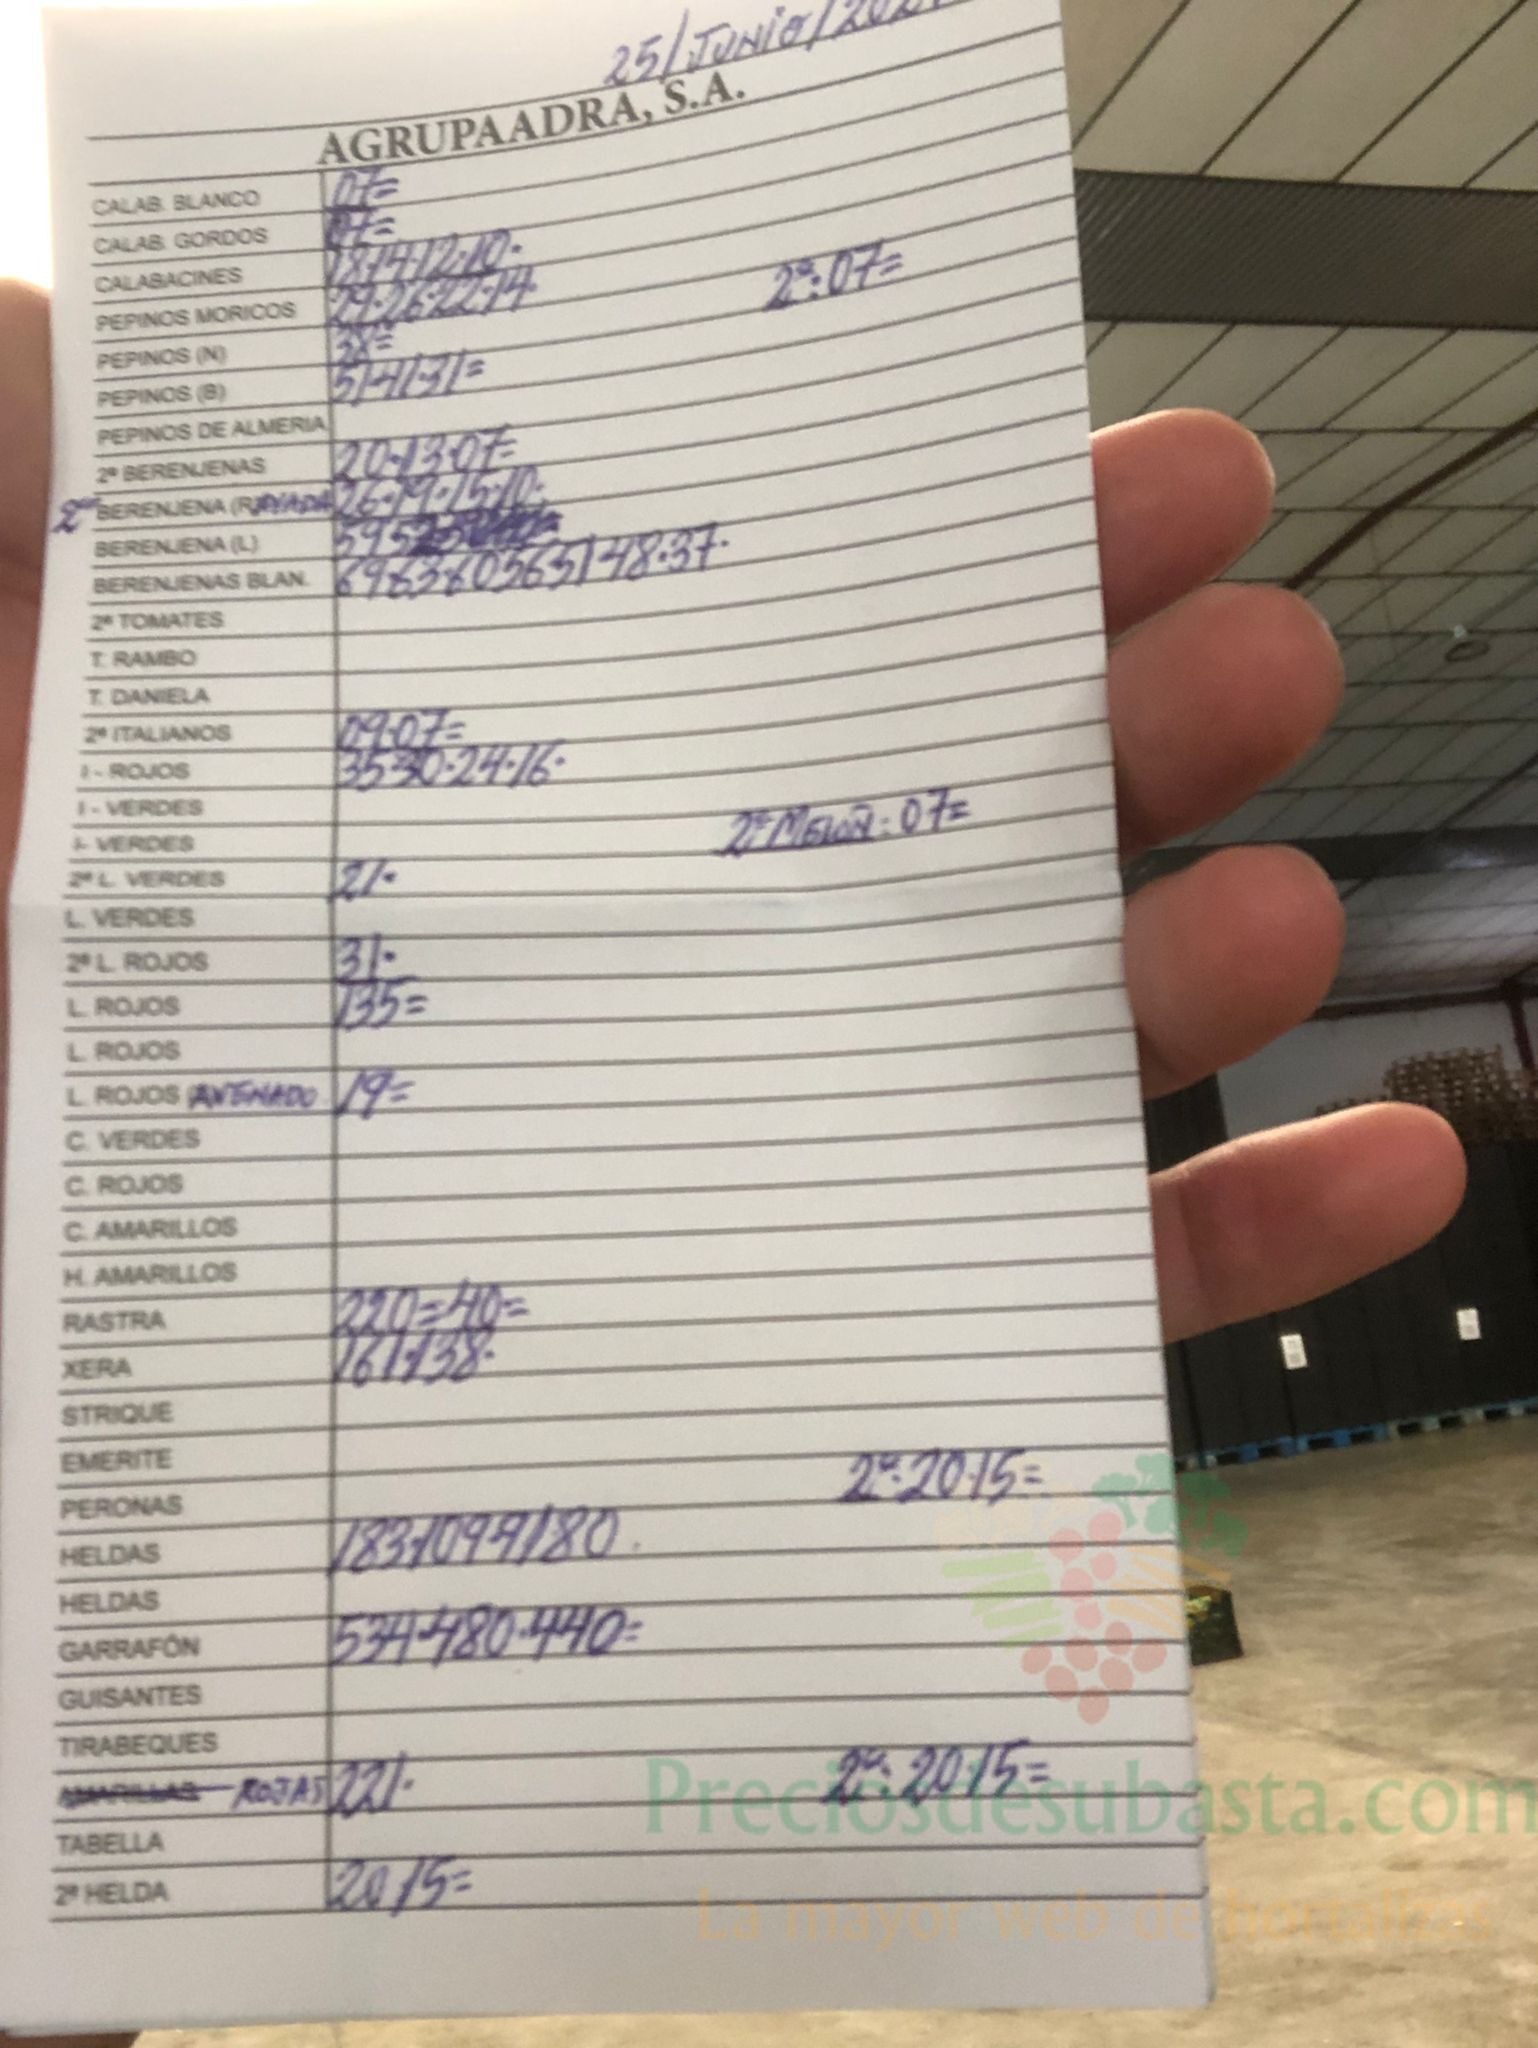 25/JUNIO/202
AGRUPAADRA, S.A.
CALAB. BLANCO 07=
CALAB. GORDOS 07=
CALABACINES 18·14·12·10·
PEPINOS MORICOS 29·26·22·14· 2ª: 07=
PEPINOS (N) 38=
PEPINOS (B) 51·41·31=
PEPINOS DE ALMERIA
2ª BERENJENAS 20·13·07=
2ª BERENJENA (RAYADA 26·19·15·10·
BERENJENA (L) 59
BERENJENAS BLAN. 69·63·60·56·51·48·37·
2ª TOMATES
T. RAMBO
T. DANIELA
2ª ITALIANOS 09·07=
I - ROJOS 35·30·24·16·
I - VERDES
I- VERDES 2ª MELON: 07=
2ª L. VERDES 21·
L. VERDES
2ª L. ROJOS 31·
L. ROJOS 135=
L. ROJOS
L. ROJOS (AXENADO 19=
C. VERDES
C. ROJOS
C. AMARILLOS
H. AMARILLOS
RASTRA 220=40=
XERA 161·138·
STRIQUE
EMERITE
PERONAS 2ª: 20·15=
HELDAS 183·109·91·80.
HELDAS
GARRAFÓN 534·480·440=
GUISANTES
TIRABEQUES
AMARILLAS ROJAS 221· 2ª: 20·15=
TABELLA
2ª HELDA 20·15=
Preciosdesubasta.com
La mayor web de hortalizas